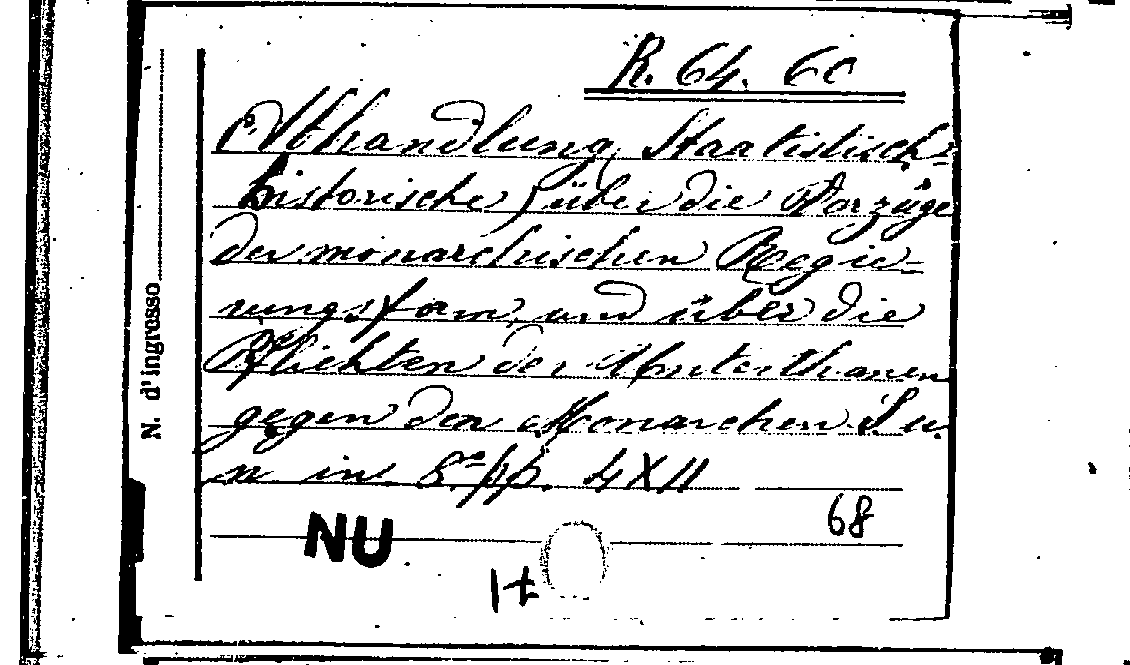 R. 64. 60
Abhandlung, Staatistisch=
historische, über die Vorzüge
der monarchischen Regie-
rungsform, und über die
Pflichten der Unterthanen
gegen den Monarchen S. u.
n in 8.º pp. 4 XII
68
NU
1t
N. d'ingresso